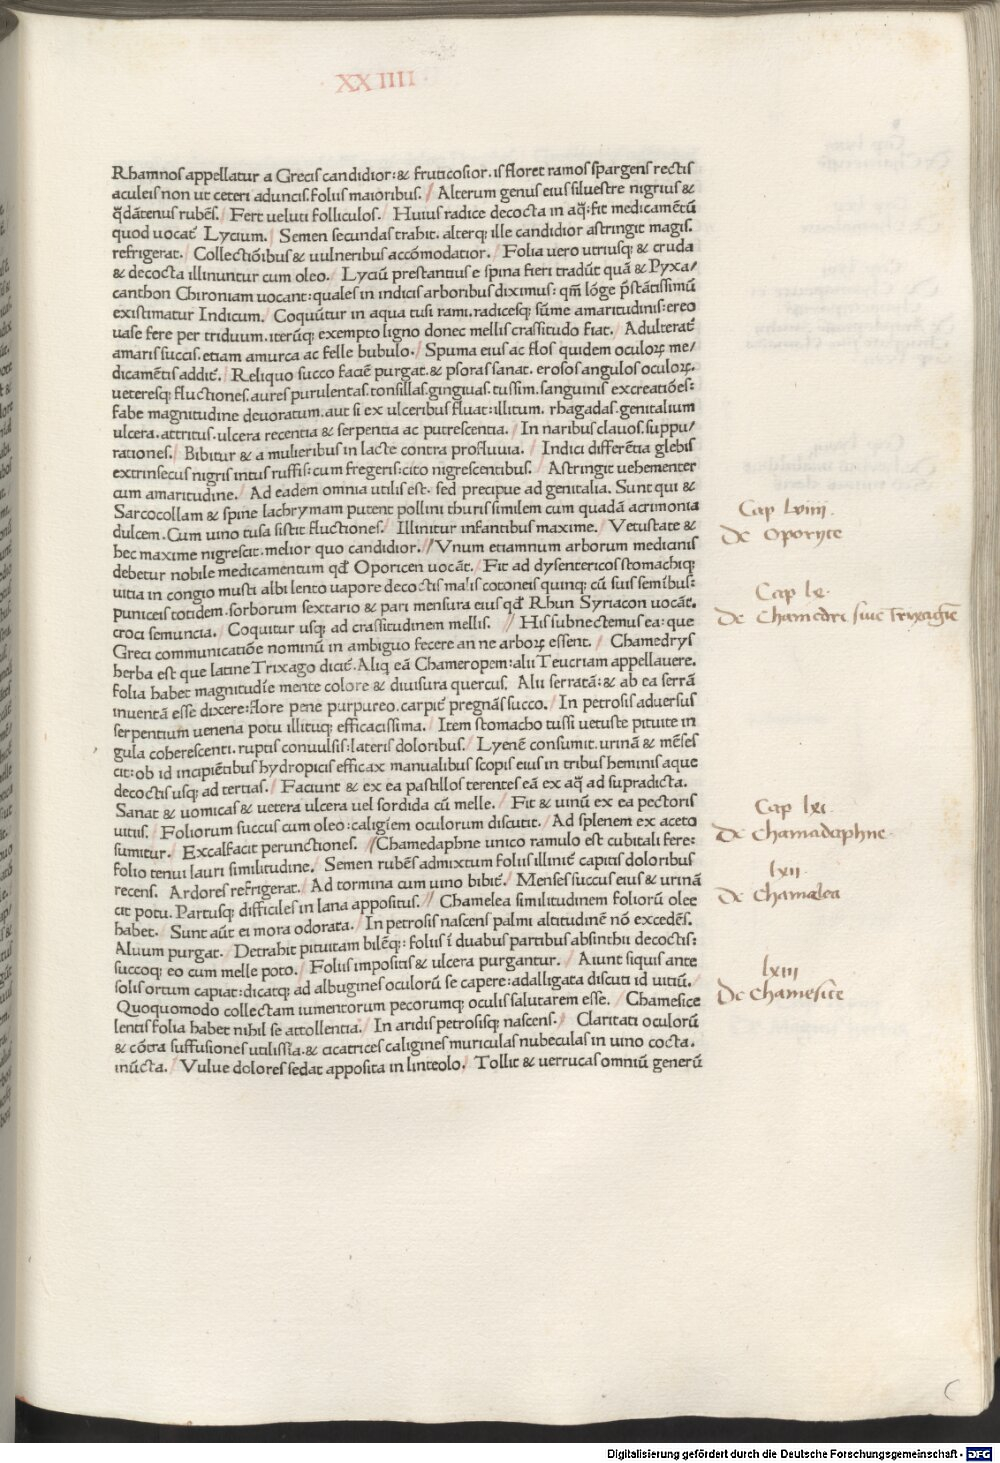 · XXIIII ·
Rhamnos appellatur a Grecis candidior: & fruticosior. is floret ramos spargens rectis
aculeis non ut ceteri aduncis. foliis maioribus. / Alterum genus eius siluestre nigrius &
q̃dãtenus rubẽs. / Fert veluti folliculos. / Huius radice decocta in aq̃: fit medicamẽtũ
quod uocat᷑ Lycium. / Semen secundas trahit. alterq; ille candidior astringit magis.
refrigerat. / Collectiõibus & uulneribus accõmodatior. / Folia uero utriusq; & cruda
& decocta illinuntur cum oleo. / Lyciũ prestantius e spina fieri tradũt quã & Pyxa/
canthon Chironiam uocant: quales in indicis arboribus diximus: qm̃ lõge p̃stãtissimũ
existimatur Indicum. / Coquũtur in aqua tusi rami. radicesq; sũme amaritudinis: ereo
uase fere per triduum. iterũq; exempto ligno donec mellis crassitudo fiat. / Adulterat᷑
amaris succis. etiam amurca ac felle bubulo. / Spuma eius ac flos quidem oculoꝝ me/
dicamẽtis addit᷑. / Reliquo succo faciẽ purgat. & psoras sanat. erosos angulos oculoꝝ.
ueteresq; fluctiones. aures purulentas. tonsillas. gingiuas. tussim. sanguinis excreatiões:
fabe magnitudine deuoratum. aut si ex ulceribus fluat: illitum. rhagadas. genitalium
ulcera. attritus. ulcera recentia & serpentia ac putrescentia. / In naribus clauos. suppu/
rationes. / Bibitur & a mulieribus in lacte contra profluuia. / Indici differẽtia glebis
extrinsecus nigris intus ruffis: cum fregeris: cito nigrescentibus. / Astringit uehementer
cum amaritudine. / Ad eadem omnia utilis est. sed precipue ad genitalia. Sunt qui &
Sarcocollam & spine lachrymam putent pollini thuris similem cum quadã acrimonia
dulcem. Cum uino tusa sistit fluctiones. / Illinitur infantibus maxime. / Vetustate &
hec maxime nigrescit. melior quo candidior. // Vnum etiamnum arborum medicinis
debetur nobile medicamentum qđ Oporicen uocãt. / Fit ad dysentericos stomachiq;
uitia in congio musti albi lento uapore decoctis malis cotoneis quinq; cũ suis semĩbus:
puniceis totidem. sorborum sextario & pari mensura eius qđ Rhun Syriacon uocãt.
croci semuncia. / Coquitur usq; ad crassitudinem mellis. / His subnectemus ea: que
Greci communicatiõe nominũ in ambiguo fecere an ne arboꝝ essent. / Chamedrys
herba est que latine Trixago dicit᷑. Aliq; eã Chameropem: alii Teucriam appellauere.
folia habet magnitudĩe mente colore & diuisura quercus. Alii serratã: & ab ea serrã
inuentã esse dixere: flore pene purpureo. carpit᷑ pregnãs succo. / In petrosis aduersus
serpentium uenena potu illituq; efficacissima. / Item stomacho tussi uetuste pituite in
gula coherescenti. ruptis conuulsis: lateris doloribus. / Lyenẽ consumit. urinã & mẽses
cit: ob id incipiẽtibus hydropicis efficax manualibus scopis eius in tribus heminis aque
decoctis usq; ad tertias. / Faciunt & ex ea pastillos terentes eã ex aq̃ ad supradicta.
Sanat & uomicas & uetera ulcera uel sordida cũ melle. / Fit & uinũ ex ea pectoris
uitiis. / Foliorum succus cum oleo: caligĩem oculorum discutit. / Ad splenem ex aceto
sumitur. / Excalfacit perunctiones. // Chamedaphne unico ramulo est cubitali fere:
folio tenui lauri similitudine. / Semen rubẽs admixtum foliis illinit᷑ capitis doloribus
recens. Ardores refrigerat. / Ad tormina cum uino bibit᷑. / Menses succus eius & urinã
cit potu. Partusq; difficiles in lana appositus. // Chamelea similitudinem foliorũ olee
habet. / Sunt aũt ei mora odorata. / In petrosis nascens palmi altitudinẽ nõ excedẽs.
Aluum purgat. / Detrahit pituitam bilẽq;: foliis ĩ duabus partibus absinthii decoctis:
succoq; eo cum melle poto. / Foliis impositis & ulcera purgantur. / Aiunt siquis ante
solis ortum capiat: dicatq; ad albugines oculorũ se capere: adalligata discuti id uitiũ. /
Quoquomodo collectam iumentorum pecorumq; oculis salutarem esse. / Chamesice
lentis folia habet nihil se attollentia. / In aridis petrosisq; nascens. / Claritati oculorũ
& cõtra suffusiones utilissĩa. & cicatrices caligines muriculas nubeculas in uino cocta.
inũcta. / Vulue dolores sedat apposita in linteolo. / Tollit & uerrucas omniũ generũ
Cap lviiii.
De Oporyce
Cap lx.
De Chamedri siue Trixagĩe
Cap lxi.
De Chamadaphne.
lxii.
De Chamelea
lxiii
De Chamesice
Digitalisierung gefördert durch die Deutsche Forschungsgemeinschaft - DFG